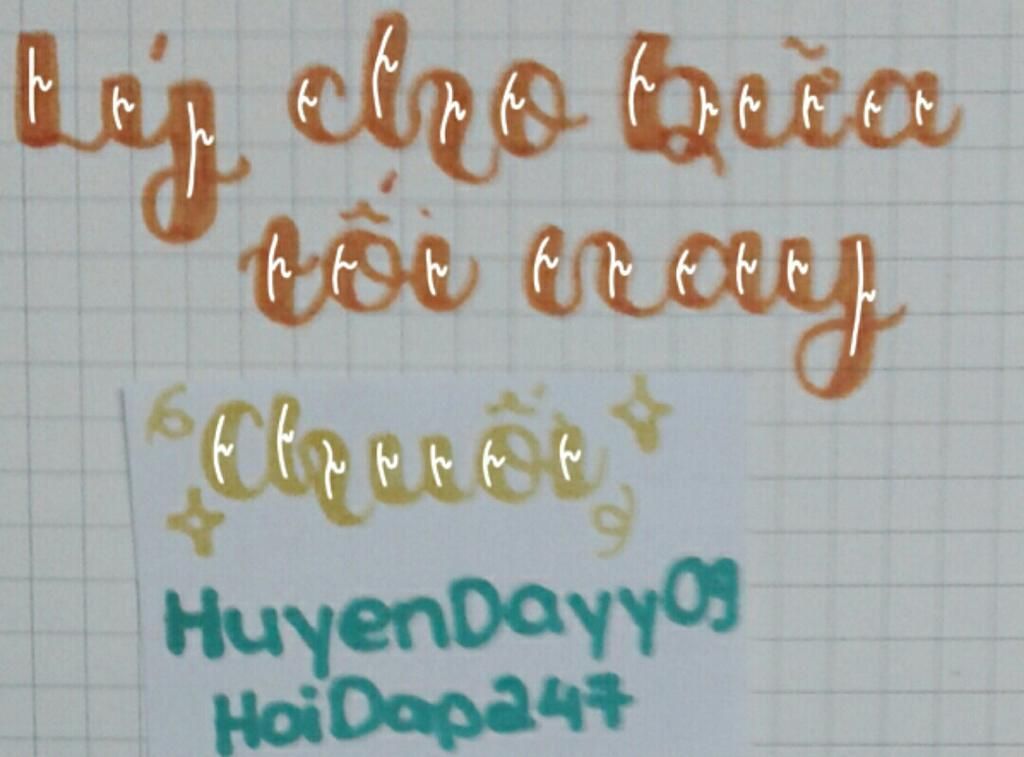 Lý cho bữa
tối nay
Chuối
HuyenDayy09
HoiDap247